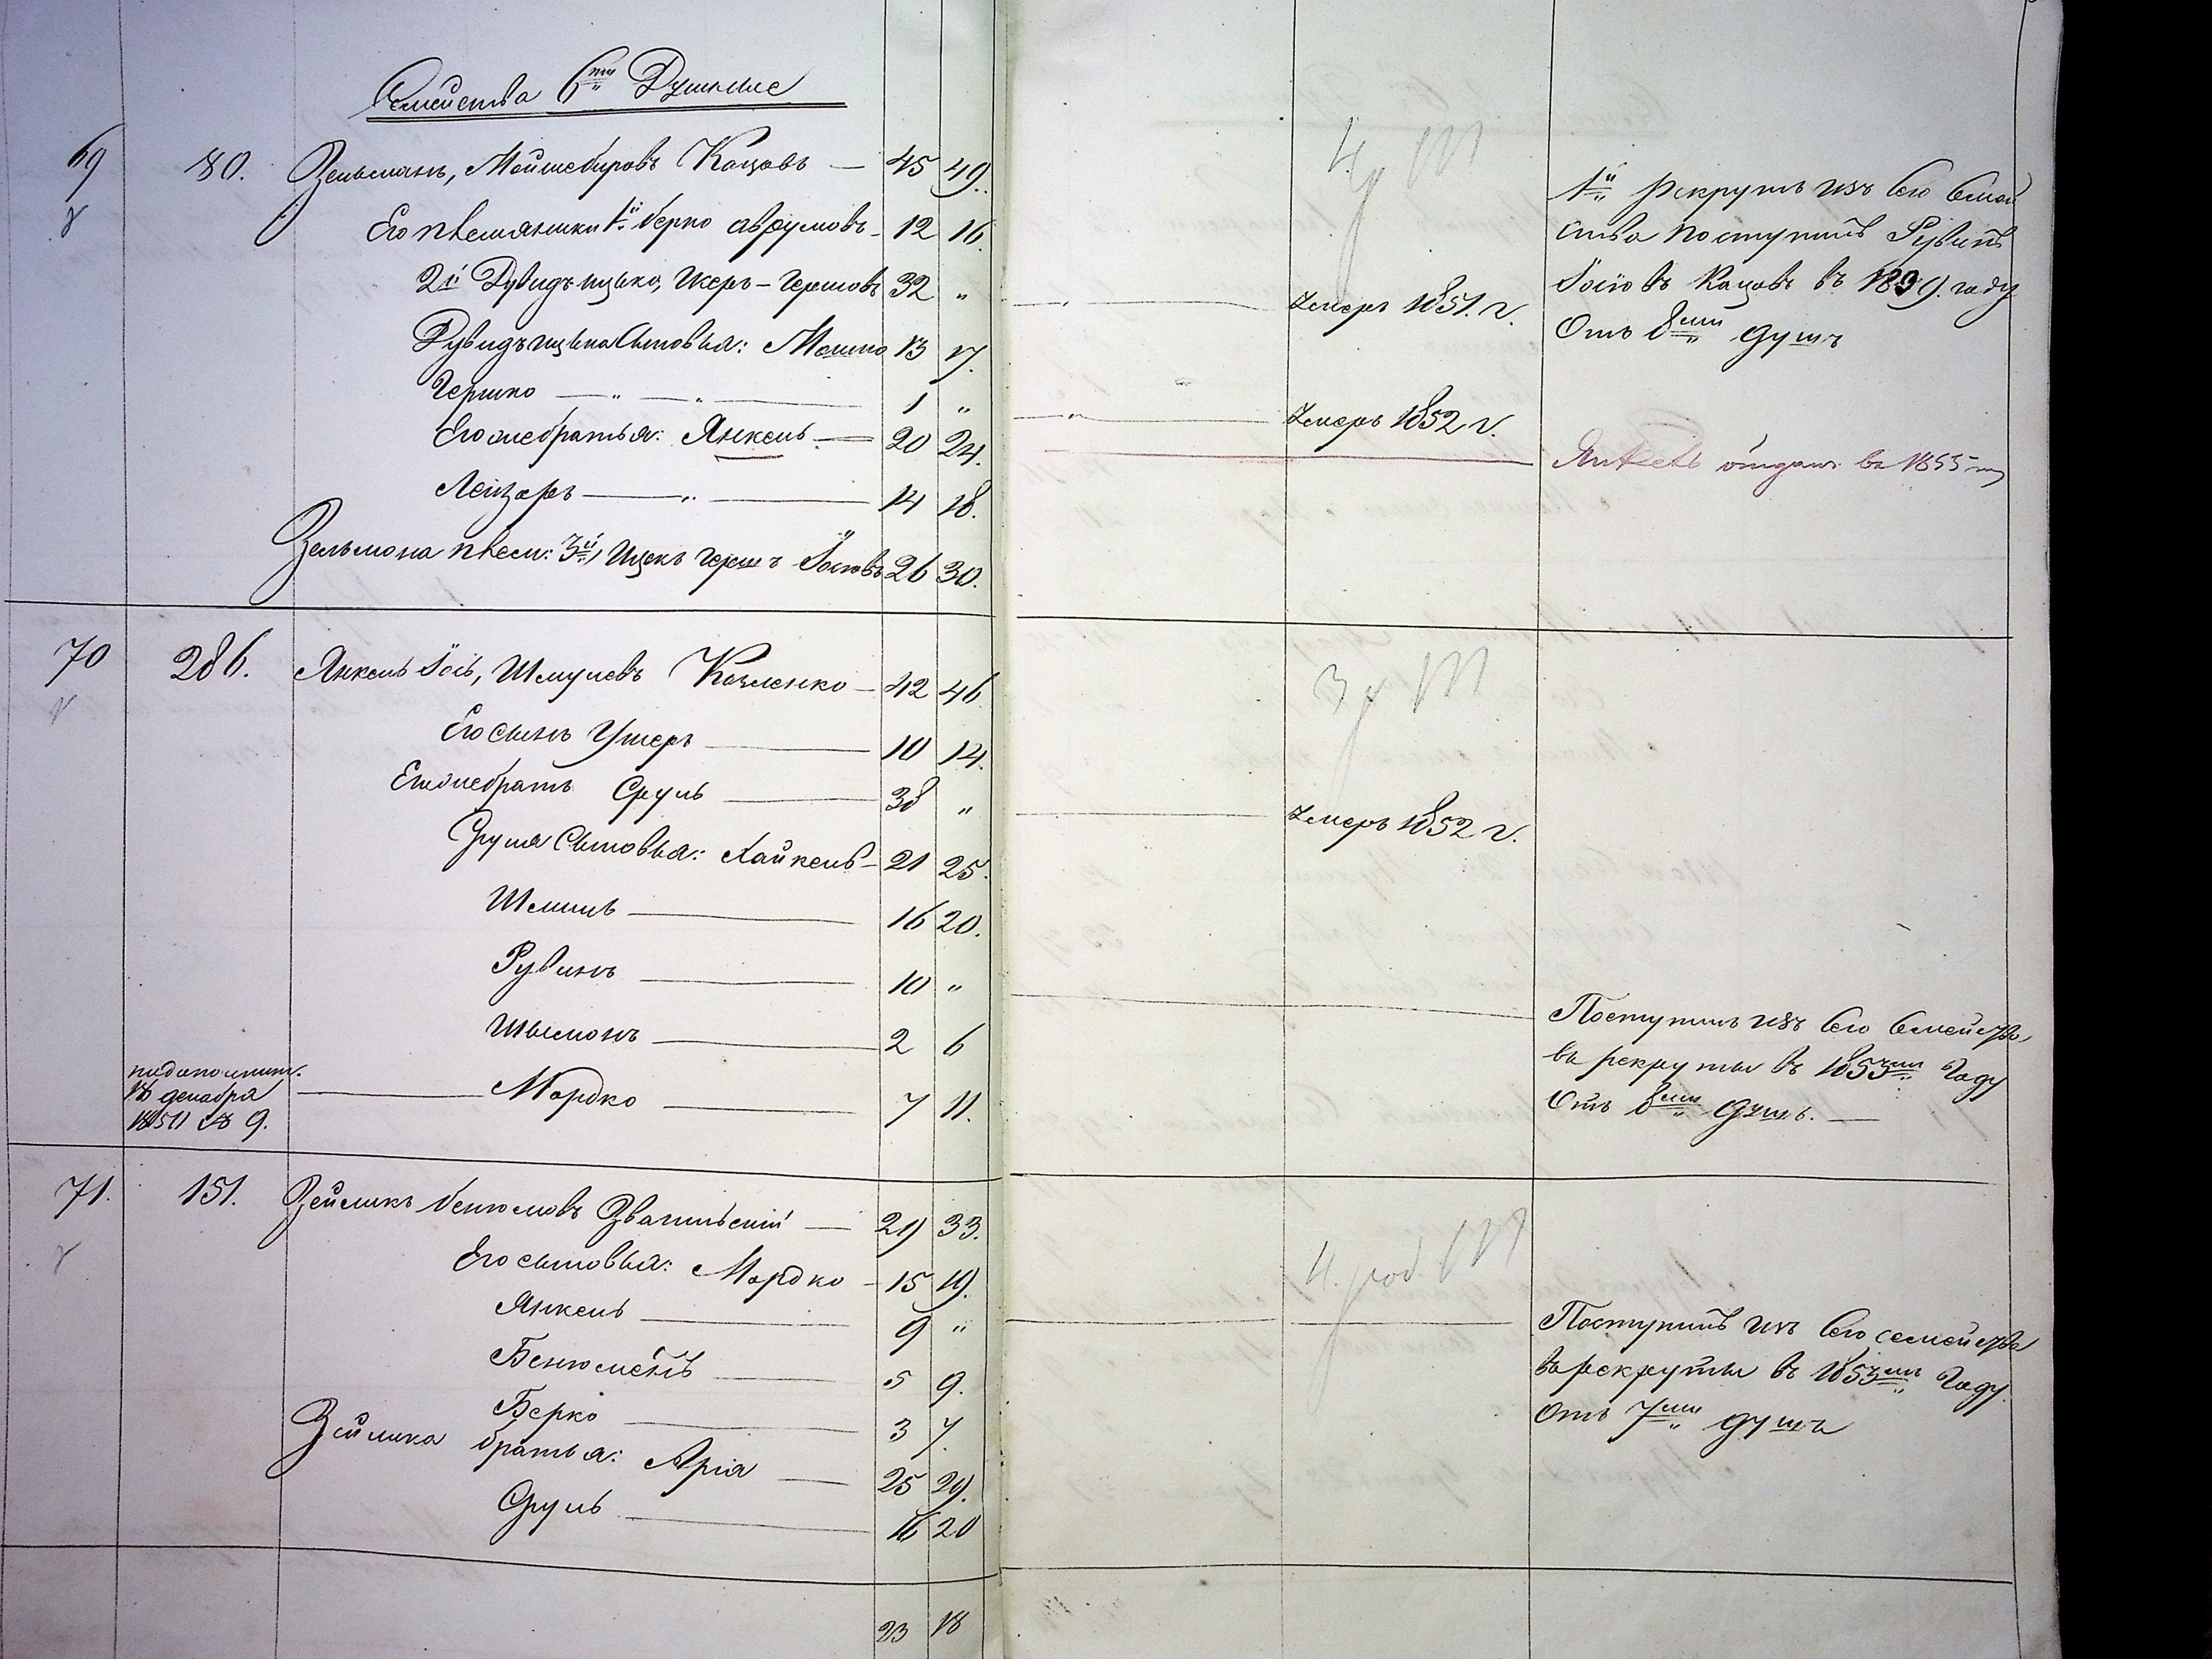 Семейства 6ти Душные
69 80. Зельманъ, Мойшебировъ Кацовъ — 45 49.
Его племяники 1й Берко Аврумовъ 12 16.
2й Дувидъ ицько, Икеръ-Гершовъ 32 „ — „ — Умеръ 1851. г.
Дувидъ ицька Сыновья: Мошко 13 17.
Гершко — „ — „ — 1 „ — „ — Умеръ 1852 г.
Его же братья: Янкель — 20 24.
Лейзоръ — „ — 14 18.
Зельмана плем: 3й, Ицекъ Гершъ Iосiовъ 26 30.
4
1й рекрутъ изъ сего Семей
ства поступилъ Рувинъ
Iосiовъ Кацовъ въ 1839. году
Отъ 8ми душъ
Янкель отданъ въ 1855
70 286. Янкель Iось, Шмулевъ Козленко — 42 46
Его сынъ Ушеръ — 10 14.
Его же братъ Сруль — 38 „ — Умеръ 1852 г.
Сруля Сыновья: Хайкель — 21 25.
Шмилъ — 16 20.
Рувинъ — 10 „
Шысмонъ — 2 6
18 декабря
1851 № 9.
Мордко — 7 11.
3
Поступилъ изъ сего Семейства
въ рекруты въ 1853мъ Году
Отъ 8ми душъ. —
71. 151. Зейликъ Бенюмовъ Звагильскiй — 29 33.
Его сыновья: Мордко — 15 19.
Янкель — 9 „
Бенюменъ — 5 9.
Берко — 3 7.
Зейлика братья: Арiя — 25 29.
Сруль — 16 20
4.
Поступилъ изъ сего семейства
въ рекруты въ 1853мъ Году.
Отъ 7ми душъ
23 18